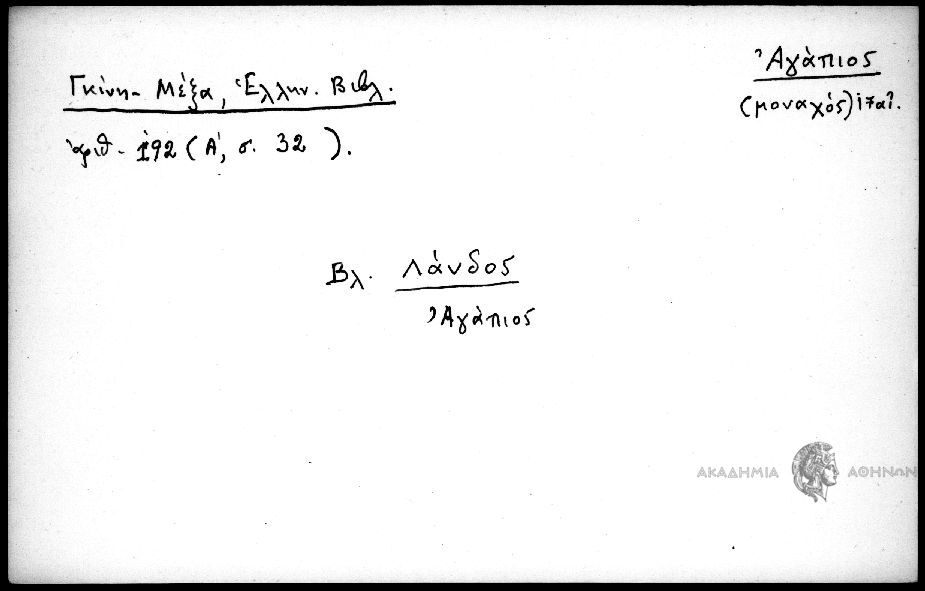 Ἀγάπιος
(μοναχός) 17αι.
Γκίνη - Μέξα, Ἑλλην. Βιβλ.
ἀριθ. 192 (Α΄, σ. 32 ).
Βλ. Λάνδος
Ἀγάπιος
ΑΚΑΔΗΜΙΑ ΑΘΗΝΩΝ